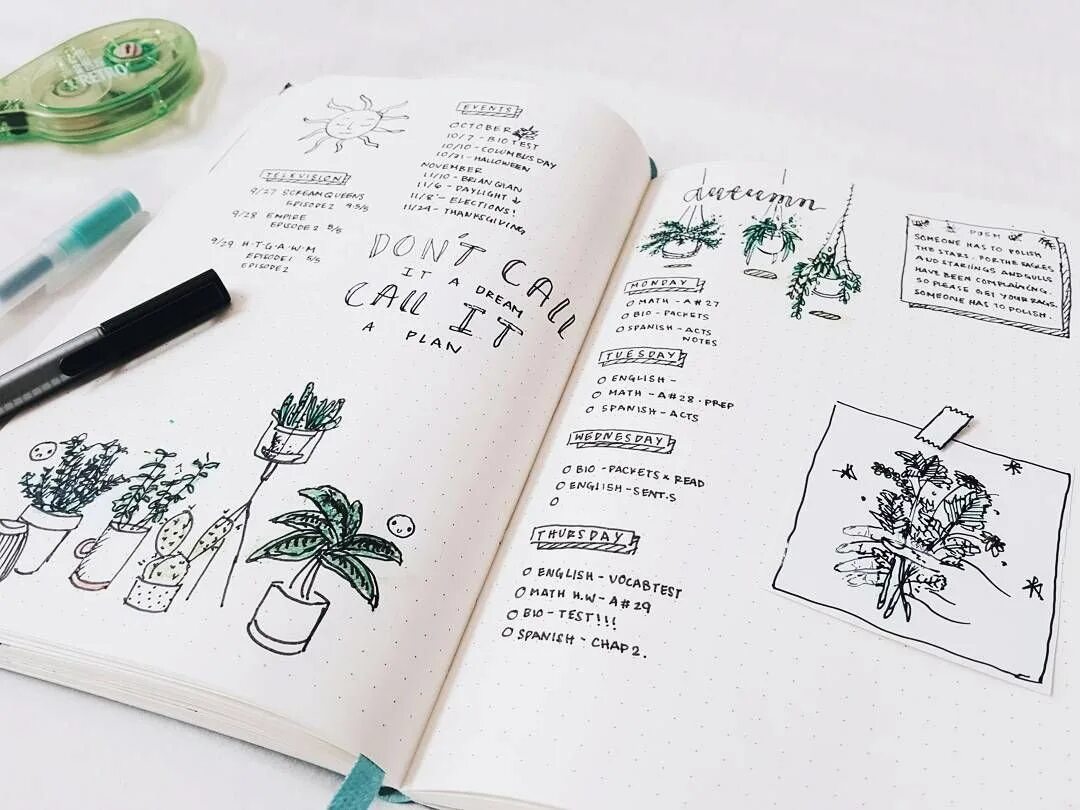 RETRO
EVENTS
OCTOBER
10/7 - BIO TEST
10/10 - COLUMBUS DAY
10/31 - HALLOWEEN
NOVEMBER
11/10 - BRIAN QIAN
11/6 - DAYLIGHT ↓
11/8 - ELECTIONS!
11/24 - THANKSGIVING
TELEVISION
9/27 SCREAM QUEENS
EPISODE 2 4.5/5
9/28 EMPIRE
EPISODE 2 5/5
9/29 H·T·G·A·W·M
EPISODE 1 5/5
EPISODE 2
DON'T CALL
IT A DREAM
CALL IT
A PLAN
autumn
MONDAY
O MATH - A#27
O BIO - PACKETS
O SPANISH - ACTS
NOTES
TUESDAY
O ENGLISH -
O MATH - A#28 · PREP
O SPANISH - ACTS
WEDNESDAY
O BIO - PACKETS × READ
O ENGLISH - SENT.S
O
THURSDAY
O ENGLISH - VOCAB TEST
O MATH H.W - A#29
O BIO - TEST!!!
O SPANISH - CHAP 2.
POEM
SOMEONE HAS TO POLISH
THE STARS. FOR THE EAGLES
AND STARLINGS AND GULLS
HAVE BEEN COMPLAINING.
SO PLEASE GET YOUR RAGS.
SOMEONE HAS TO POLISH.